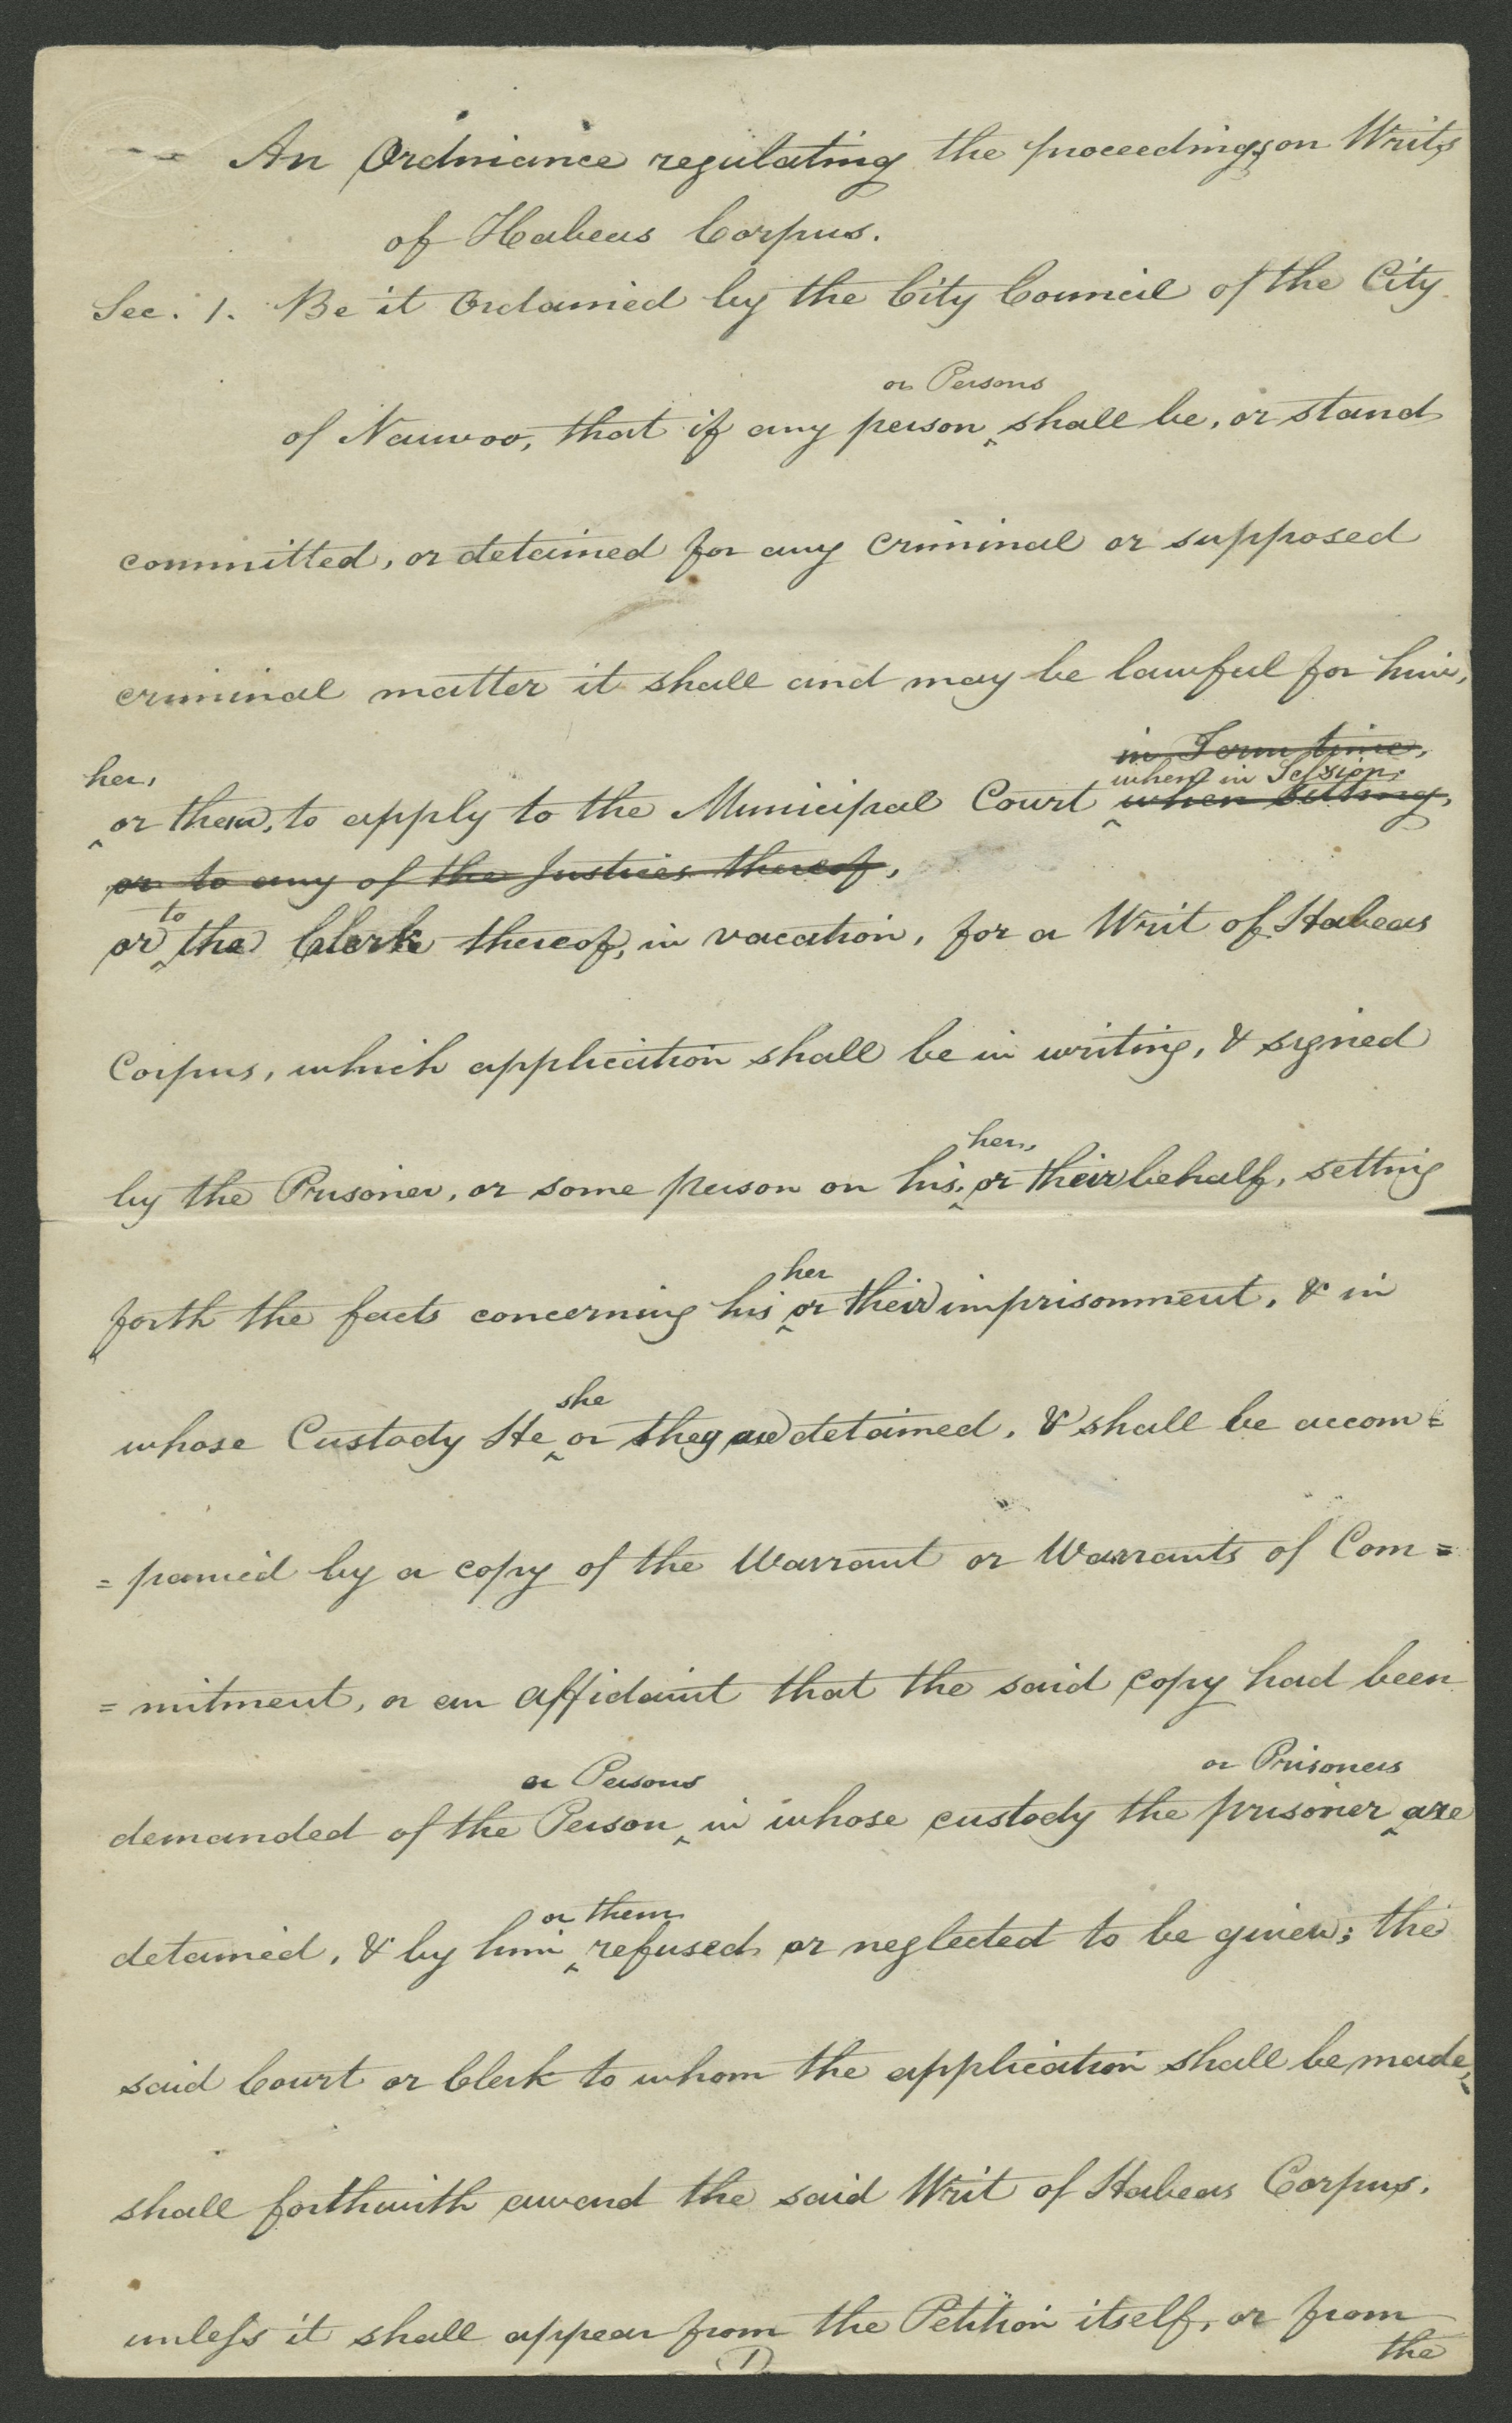 An Ordinance regulating the proceedings on Writs
of Habeas Corpus.
Sec. 1. Be it Ordained by the City Council of the City
or Persons
of Nauvoo, that if any person ‸ shall be, or stand
committed, or detained for any criminal or supposed
criminal matter it shall and may be lawful for him,
in Term time,
her,
when in Session,
‸ or them, to apply to the Municipal Court ‸ when sitting,
or to any of the Justices thereof,
to
or ‸ the Clerk thereof, in vacation, for a Writ of Habeas
Corpus, which application shall be in writing, & signed
her,
by the Prisoner, or some person on his, ‸ or their behalf, setting
her
forth the facts concerning his ‸ or their imprisonment, & in
she
whose Custody He ‸ or they are detained, & shall be accom=
=panied by a copy of the Warrant or Warrants of Com=
=mitment, or an affidavit that the said copy had been
or Persons
or Prisoners
demanded of the Person ‸ in whose custody the prisoner ‸ are
or them
detained, & by him ‸ refused or neglected to be given; the
said Court or Clerk to whom the application shall be made,
shall forthwith award the said Writ of Habeas Corpus,
unless it shall appear from the Petition itself, or from
the
1